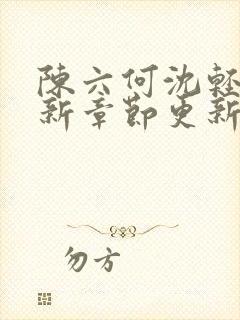 陳六何沈輕
新章節更新
勿方